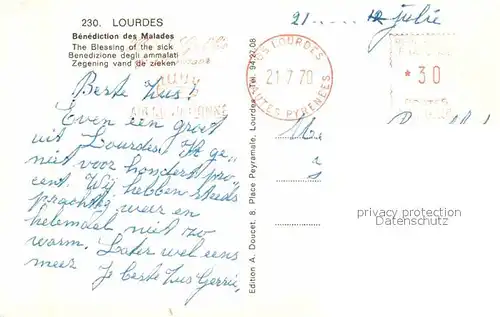 230. LOURDES
Bénédiction des Malades
The Blessing of the sick
Benedizione degli ammalati
Zegening vand de zieken
Beste Zus!
Even een groet
uit Lourdes. Ik ge-
niet voor honderd pro
cent. Wij hebben steeds
prachtig weer en
helemaal niet zo
warm. Later wel eens
meer. Je beste Zus Gerrie,
Edition A. Doucet. 8, Place Peyramale, Lourdes - Tél. 94.27.08
21 juli
65 LOURDES
21 7 70
HAUTES PYRENEES
*30
privacy protection
Datenschutz